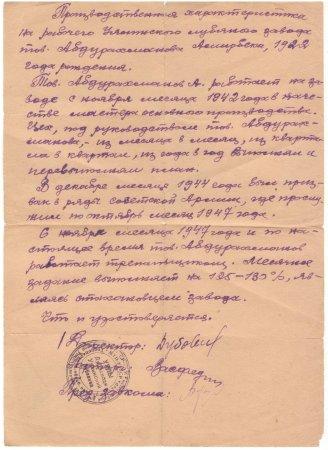 Производственная характеристика
на рабочего Угличского лубяного завода
тов. Абдурахманова Асмирбека, 1922
года рождения.
Тов. Абдурахманов А. работает на за-
воде с ноября месяца 1942 года в каче-
стве мастера основного производства.
Цех, под руководством тов. Абдурах-
манова, - из месяца в месяц, из кварта-
ла в квартал, из года в год выполнял и
перевыполнял план.
В декабре месяце 1944 года был приз-
ван в ряды Советской Армии, где прослу-
жил по октябрь месяц 1947 года.
С ноября месяца 1947 года и по на-
стоящее время тов. Абдурахманов
работает трепальщиком. Месячное
задание выполняет на 125-130%, яв-
ляясь стахановцем завода.
Что и удостоверяется.
Директор:
Парторг:
Пред. завкома: